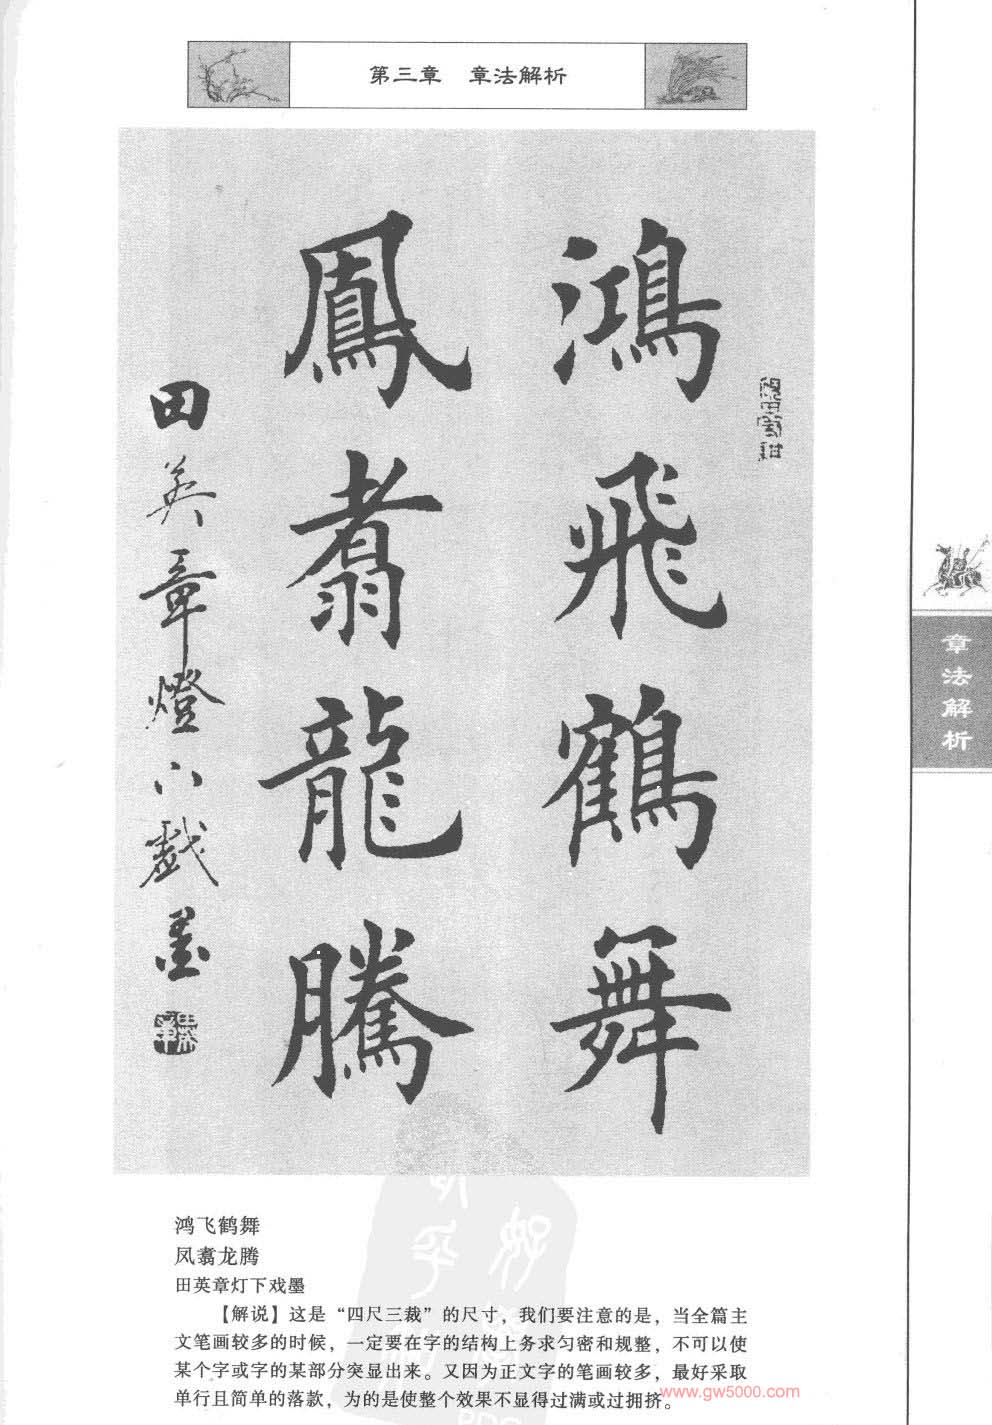 第三章 章法解析
鴻飛鶴舞
鳳翥龍騰
田英章燈下戲墨
章法解析
鸿飞鹤舞
凤翥龙腾
田英章灯下戏墨
【解说】这是“四尺三裁”的尺寸，我们要注意的是，当全篇主
文笔画较多的时候，一定要在字的结构上务求匀密和规整，不可以使
某个字或字的某部分突显出来。又因为正文字的笔画较多，最好采取
单行且简单的落款，为的是使整个效果不显得过满或过拥挤。
www.gw5000.com